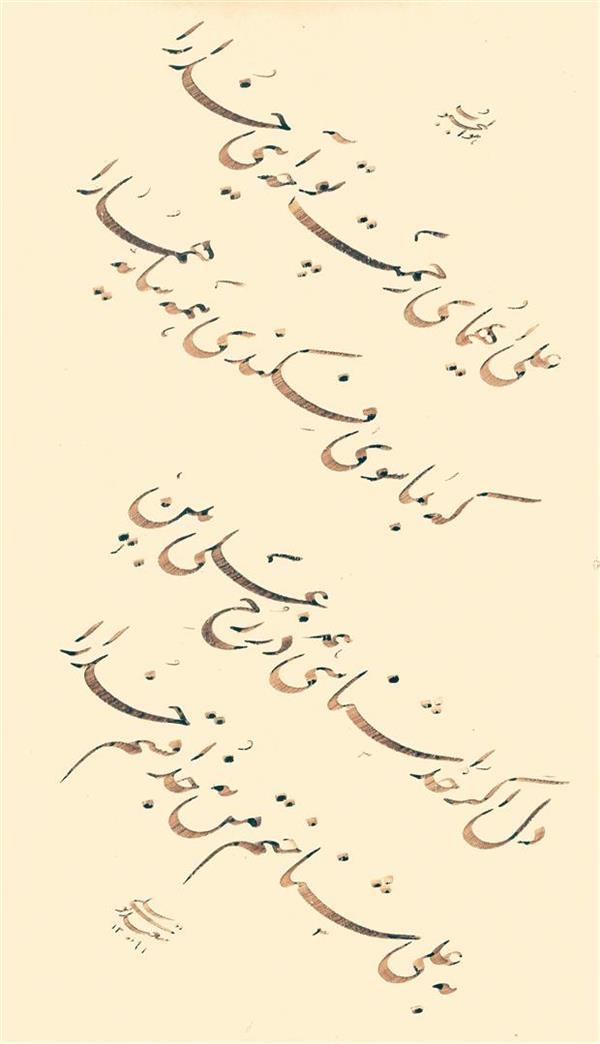 هوالمحبوب
علی ای همای رحمت تو چه آیتی خدا را
که بماسوی فکندی همه سایه هما را
دل اگر خداشناسی همه در رخ علی بین
به علی شناختم من به خدا قسم خدا را